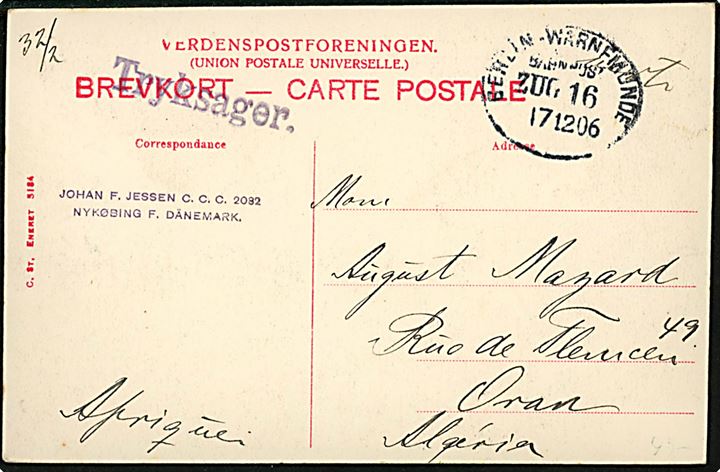 32/2
VERDENSPOSTFORENINGEN.
(UNION POSTALE UNIVERSELLE.)
BREVKORT — CARTE POSTALE
Tryksager.
BERLIN-WARNEMÜNDE
BAHNPOST
ZUG 16
171206
Correspondance
Adresse
JOHAN F. JESSEN C. C. C. 2082
NYKØBING F. DÄNEMARK.
C. ST. ENERET 5184
Mons
August Mazard
49.
Rue de Tlemcen
Oran
Afrique
Algérie